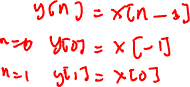 y[n] = x[n-1]
n=0 y[0] = x[-1]
n=1 y[1] = x[0]